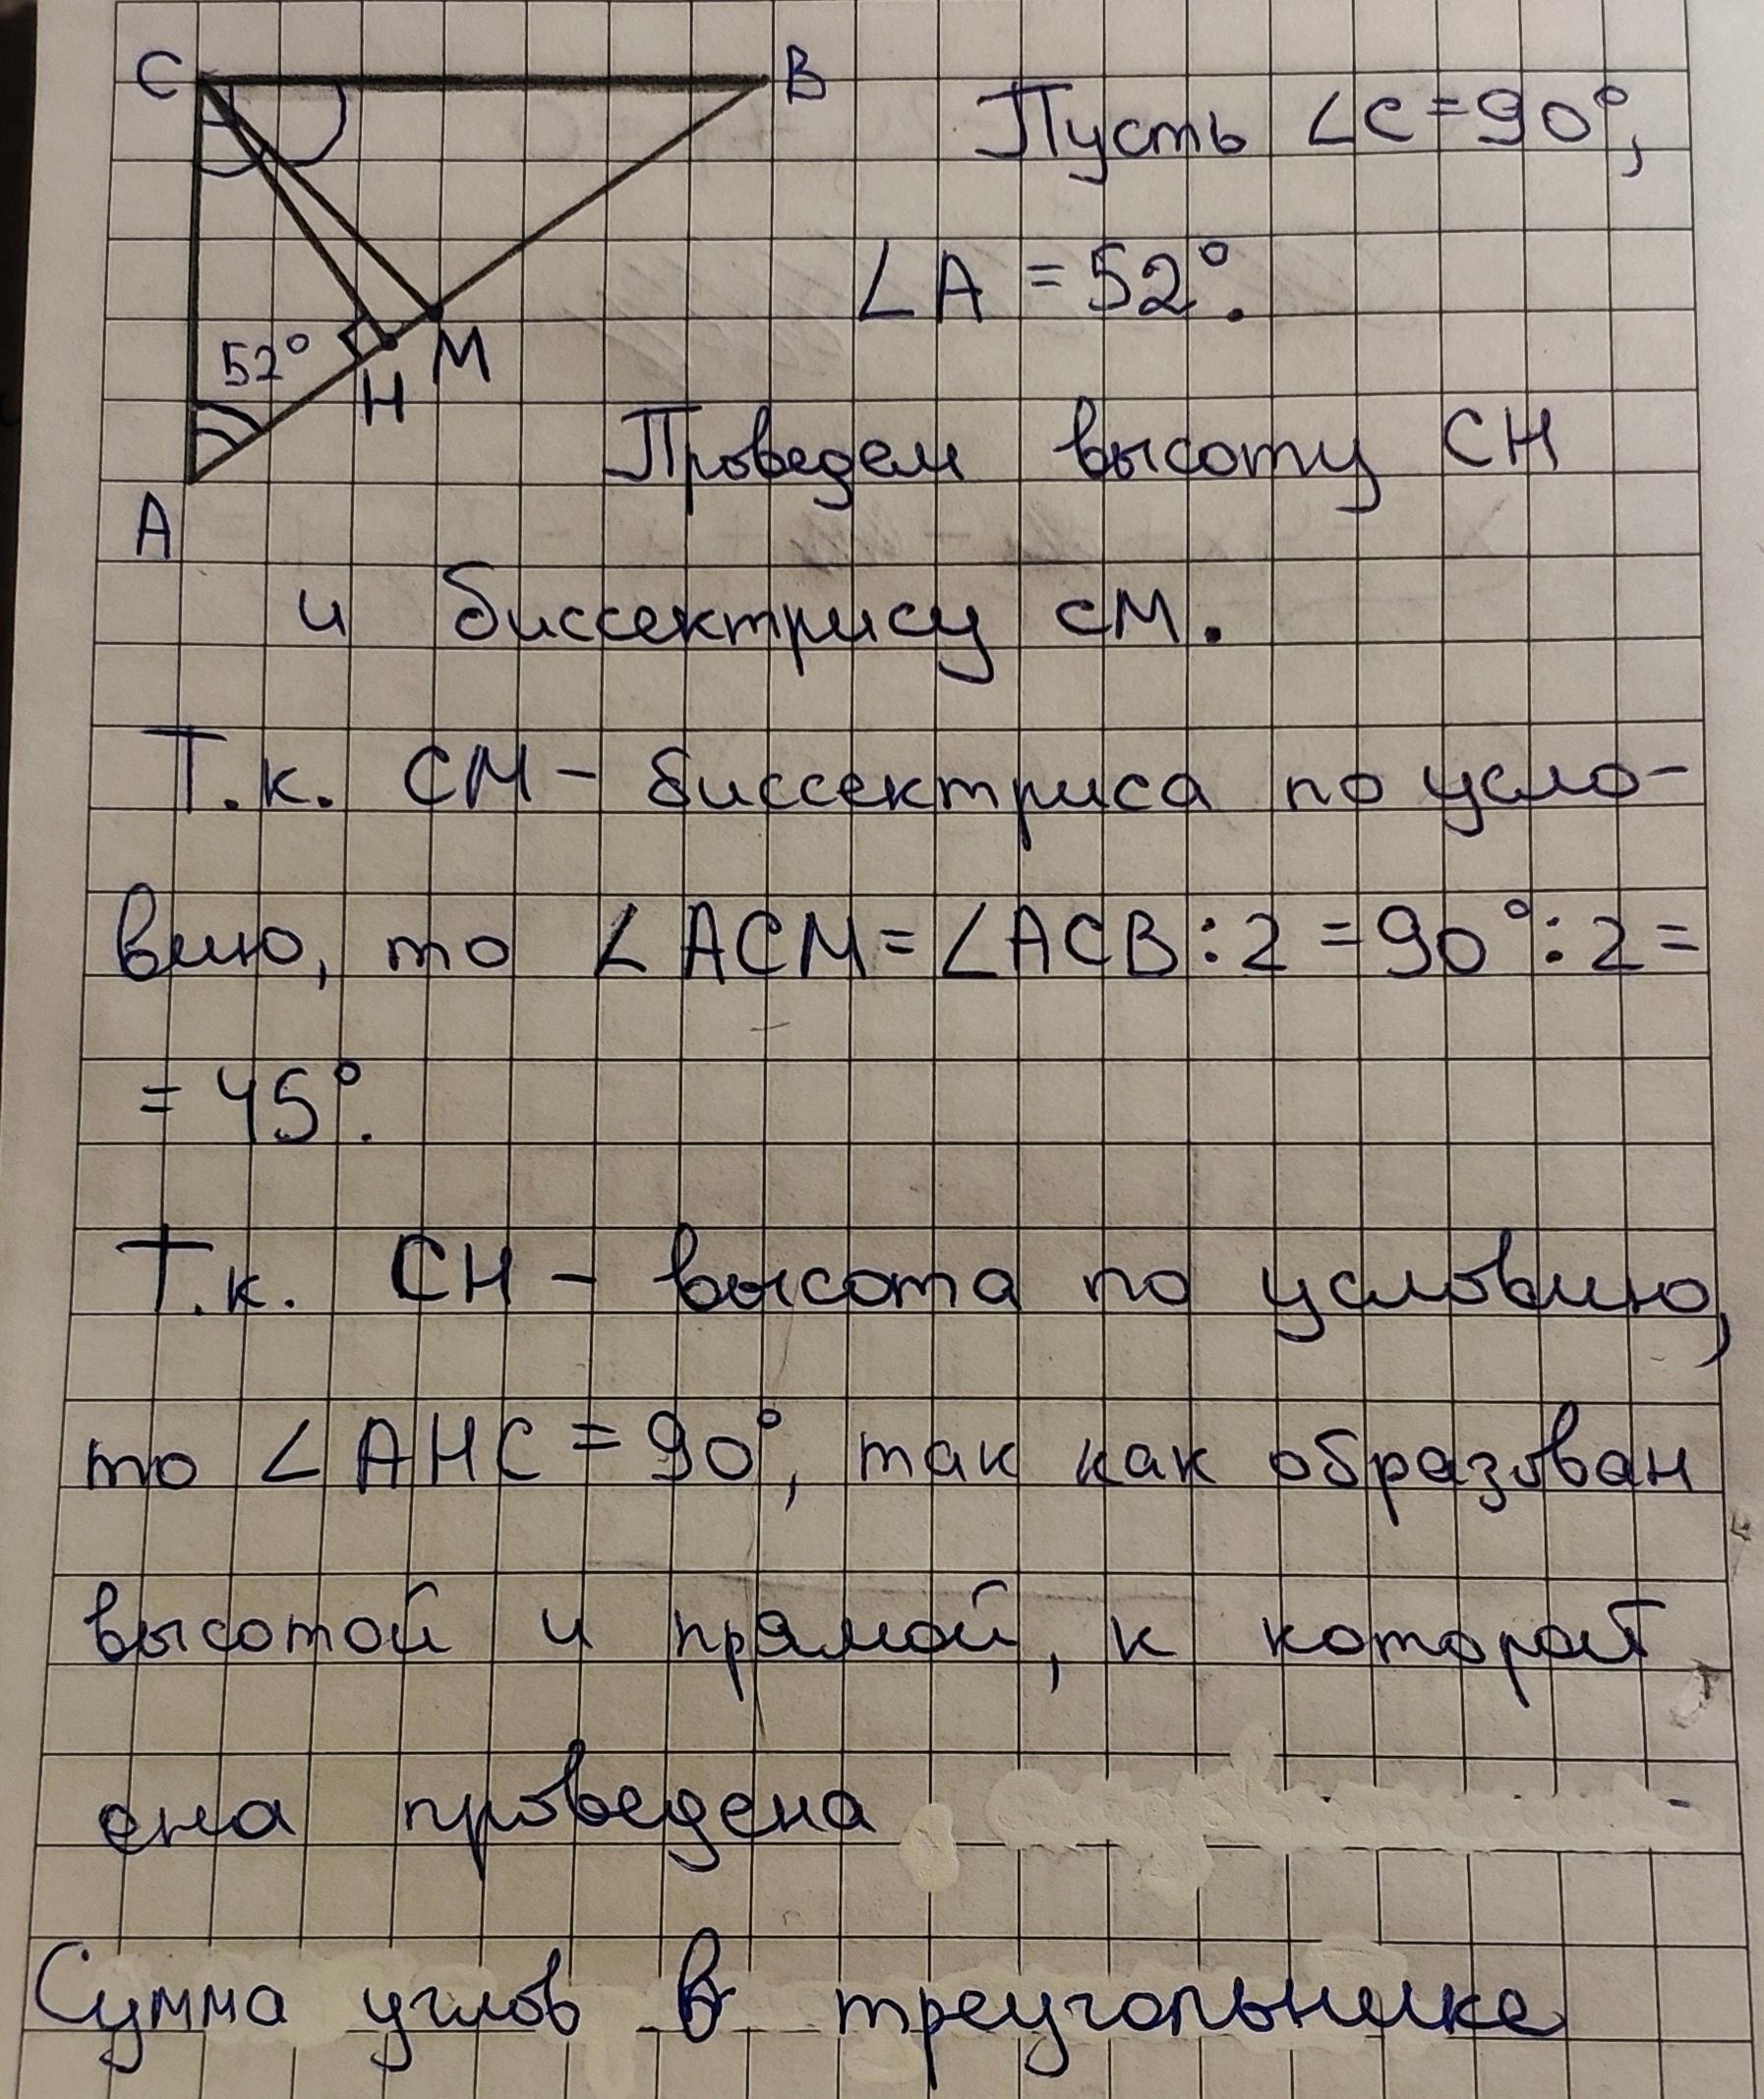 C
B
Пусть ∠C = 90°,
∠A = 52°.
52°
M
H
Проведем высоту CH
A
и биссектрису CM.
Т.к. CM – биссектриса по усло-
вию, то ∠ACM = ∠ACB : 2 = 90° : 2 =
= 45°.
Т.к. CH – высота по условию,
то ∠AHC = 90°, так как образован
высотой и прямой, к которой
она проведена
Сумма углов в треугольнике